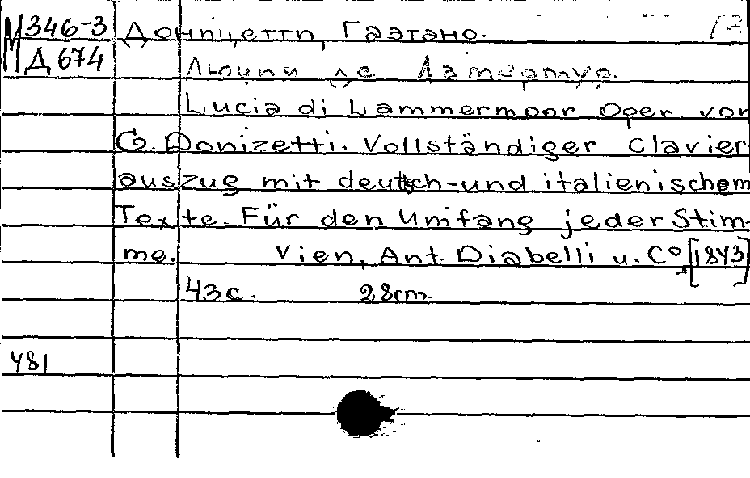 М 346-3
Д 674
Доницетти, Гаэтано.
Лючия де Ламмермур.
Lucia di Lammermoor Oper von
G. Donizetti. Vollständiger Clavier
auszug mit deutsch-und italienischem
Texte. Für den Umfang jeder Stim-
me. Vien, Ant. Diabelli u. C° [1843]
43 c. 28cm
481